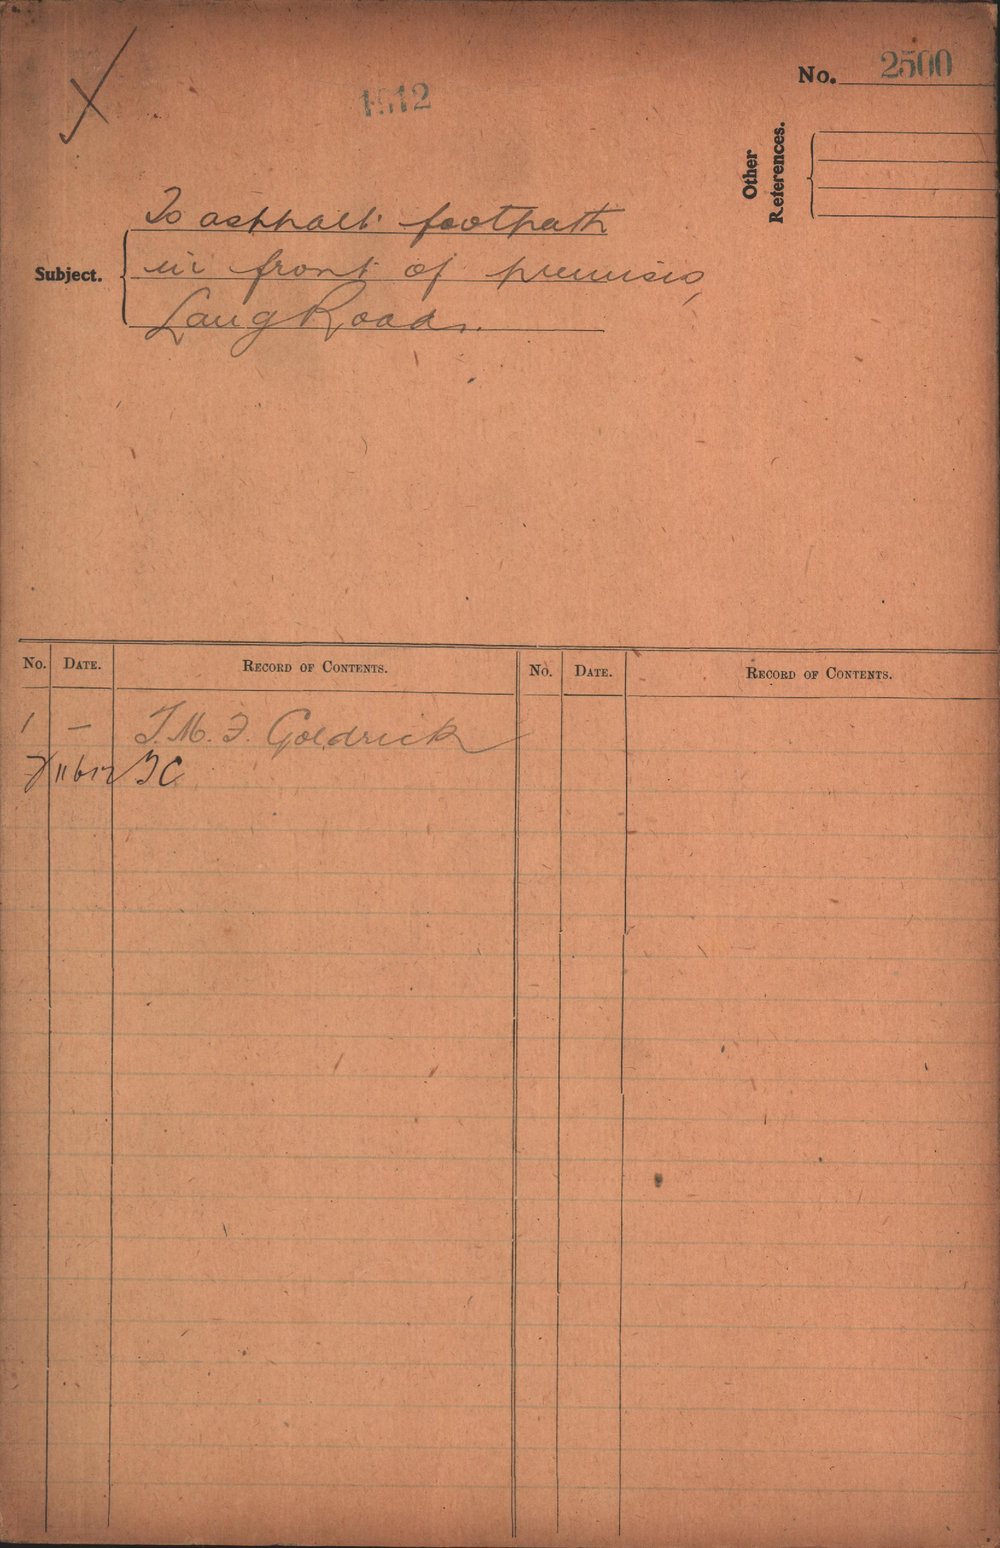 No. 2500
1912
Other
References.
To asphalt footpath
Subject. in front of premises,
Lang Road.
No. DATE. RECORD OF CONTENTS. No. DATE. RECORD OF CONTENTS.
1 — T. M. F. Goldrick
11 6 12 TC